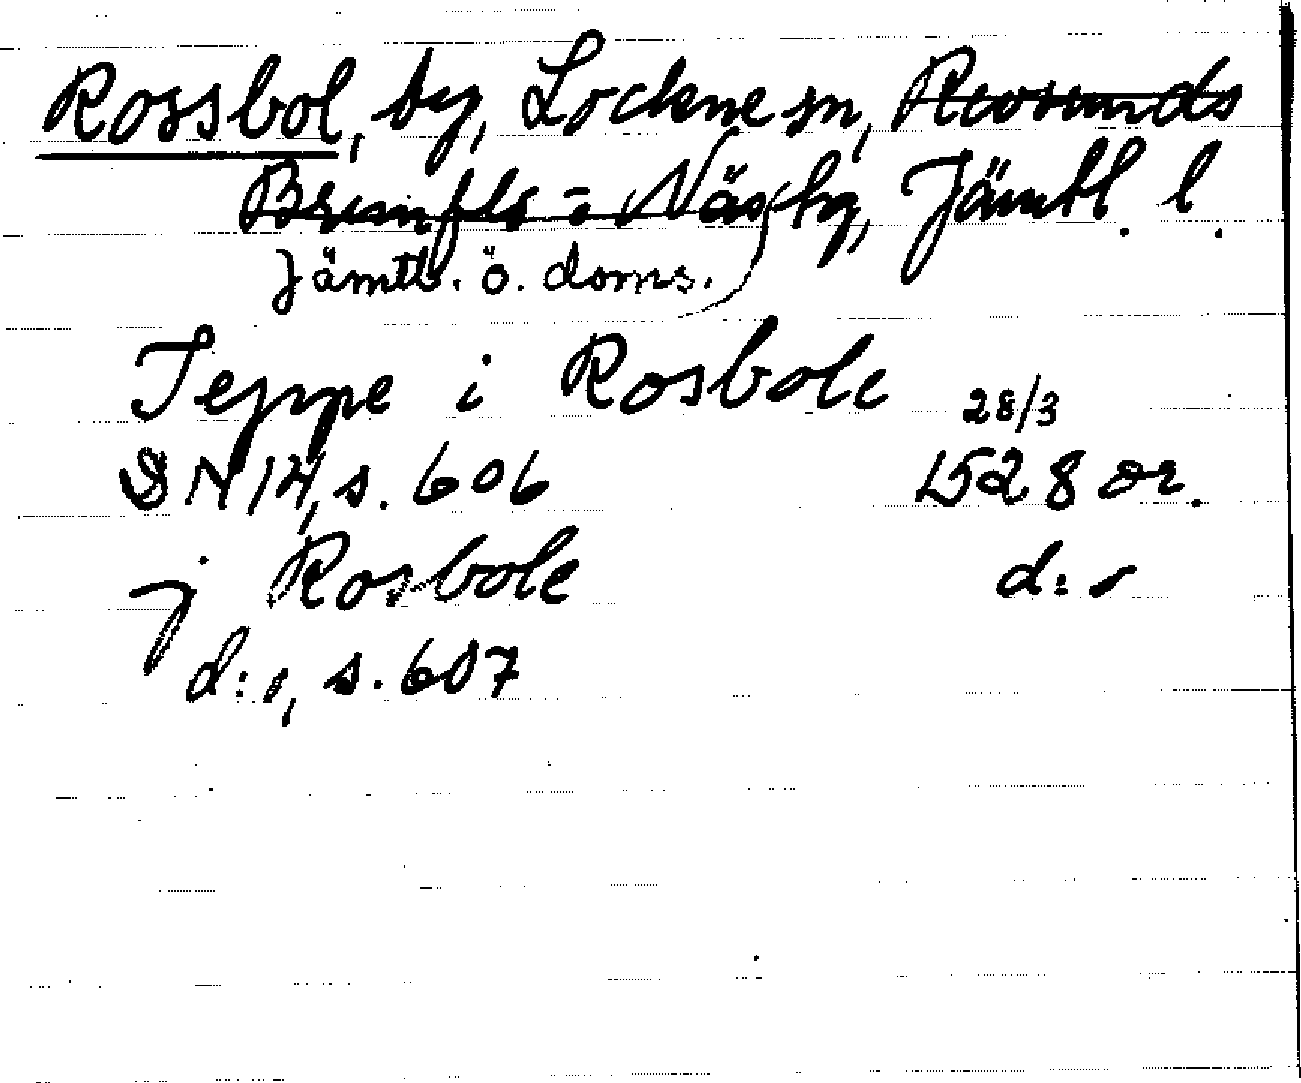 Rossbol, by, Lockne sn, Revsunds
Brunflo o Näs hg, Jämtl. l.
Jämtl. ö. doms.
Jeppe i Rosbole 28/3
DN 14, s. 606 1528 or.
j Rosbole d:o
d:o, s. 607